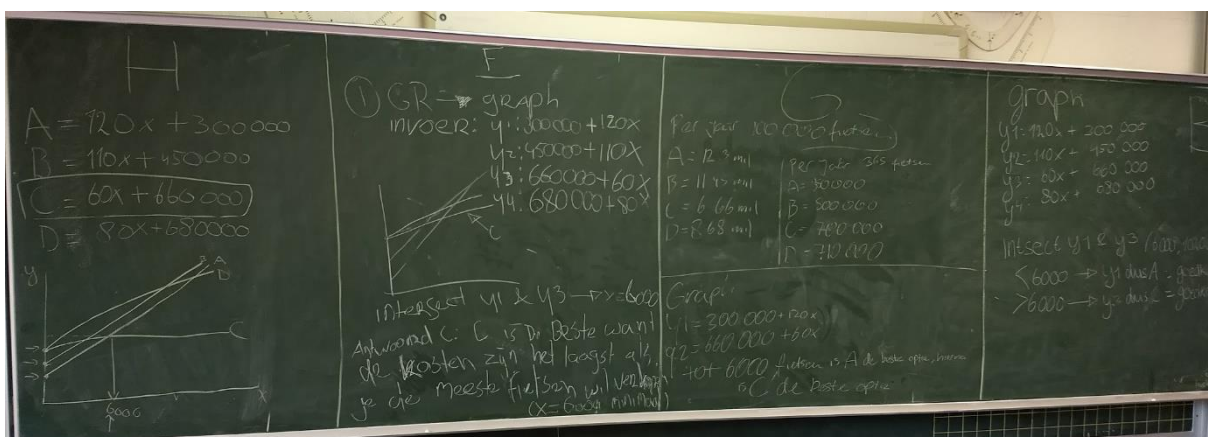 H
A = 120x + 300000
B = 110x + 450000
C = 60x + 660000
D = 80x + 680000
y
A
D
C
x
6000
F
① GR → graph
invoer: y1: 300000 + 120x
y2: 450000 + 110x
y3: 660000 + 60x
y4: 680000 + 80x
C
intersect y1 & y3 → x=6000
Antwoord C: C is De Beste want
de kosten zijn het laagst als
je de meeste fietsen wil
(x=6000 minimaal)
G
Per jaar 100 000 fietsen
A = 12.3 mil
B = 11.45 mil
C = 6.66 mil
D = 8.68 mil
Per jaar 365 fietsen
B = 500 000
C = 700 000
D = 710 000
Graph
y1 = 300 000 + 120x
y2 = 660 000 + 60x
tot 6000 fietsen is A de beste optie,
is C de beste optie
graph
y1 = 120x + 300 000
y2 = 110x + 450 000
y3 = 60x + 660 000
y4 = 80x + 680 000
Intsect y1 & y3
<6000 → y1 dus A =
>6000 → y3 dus C =